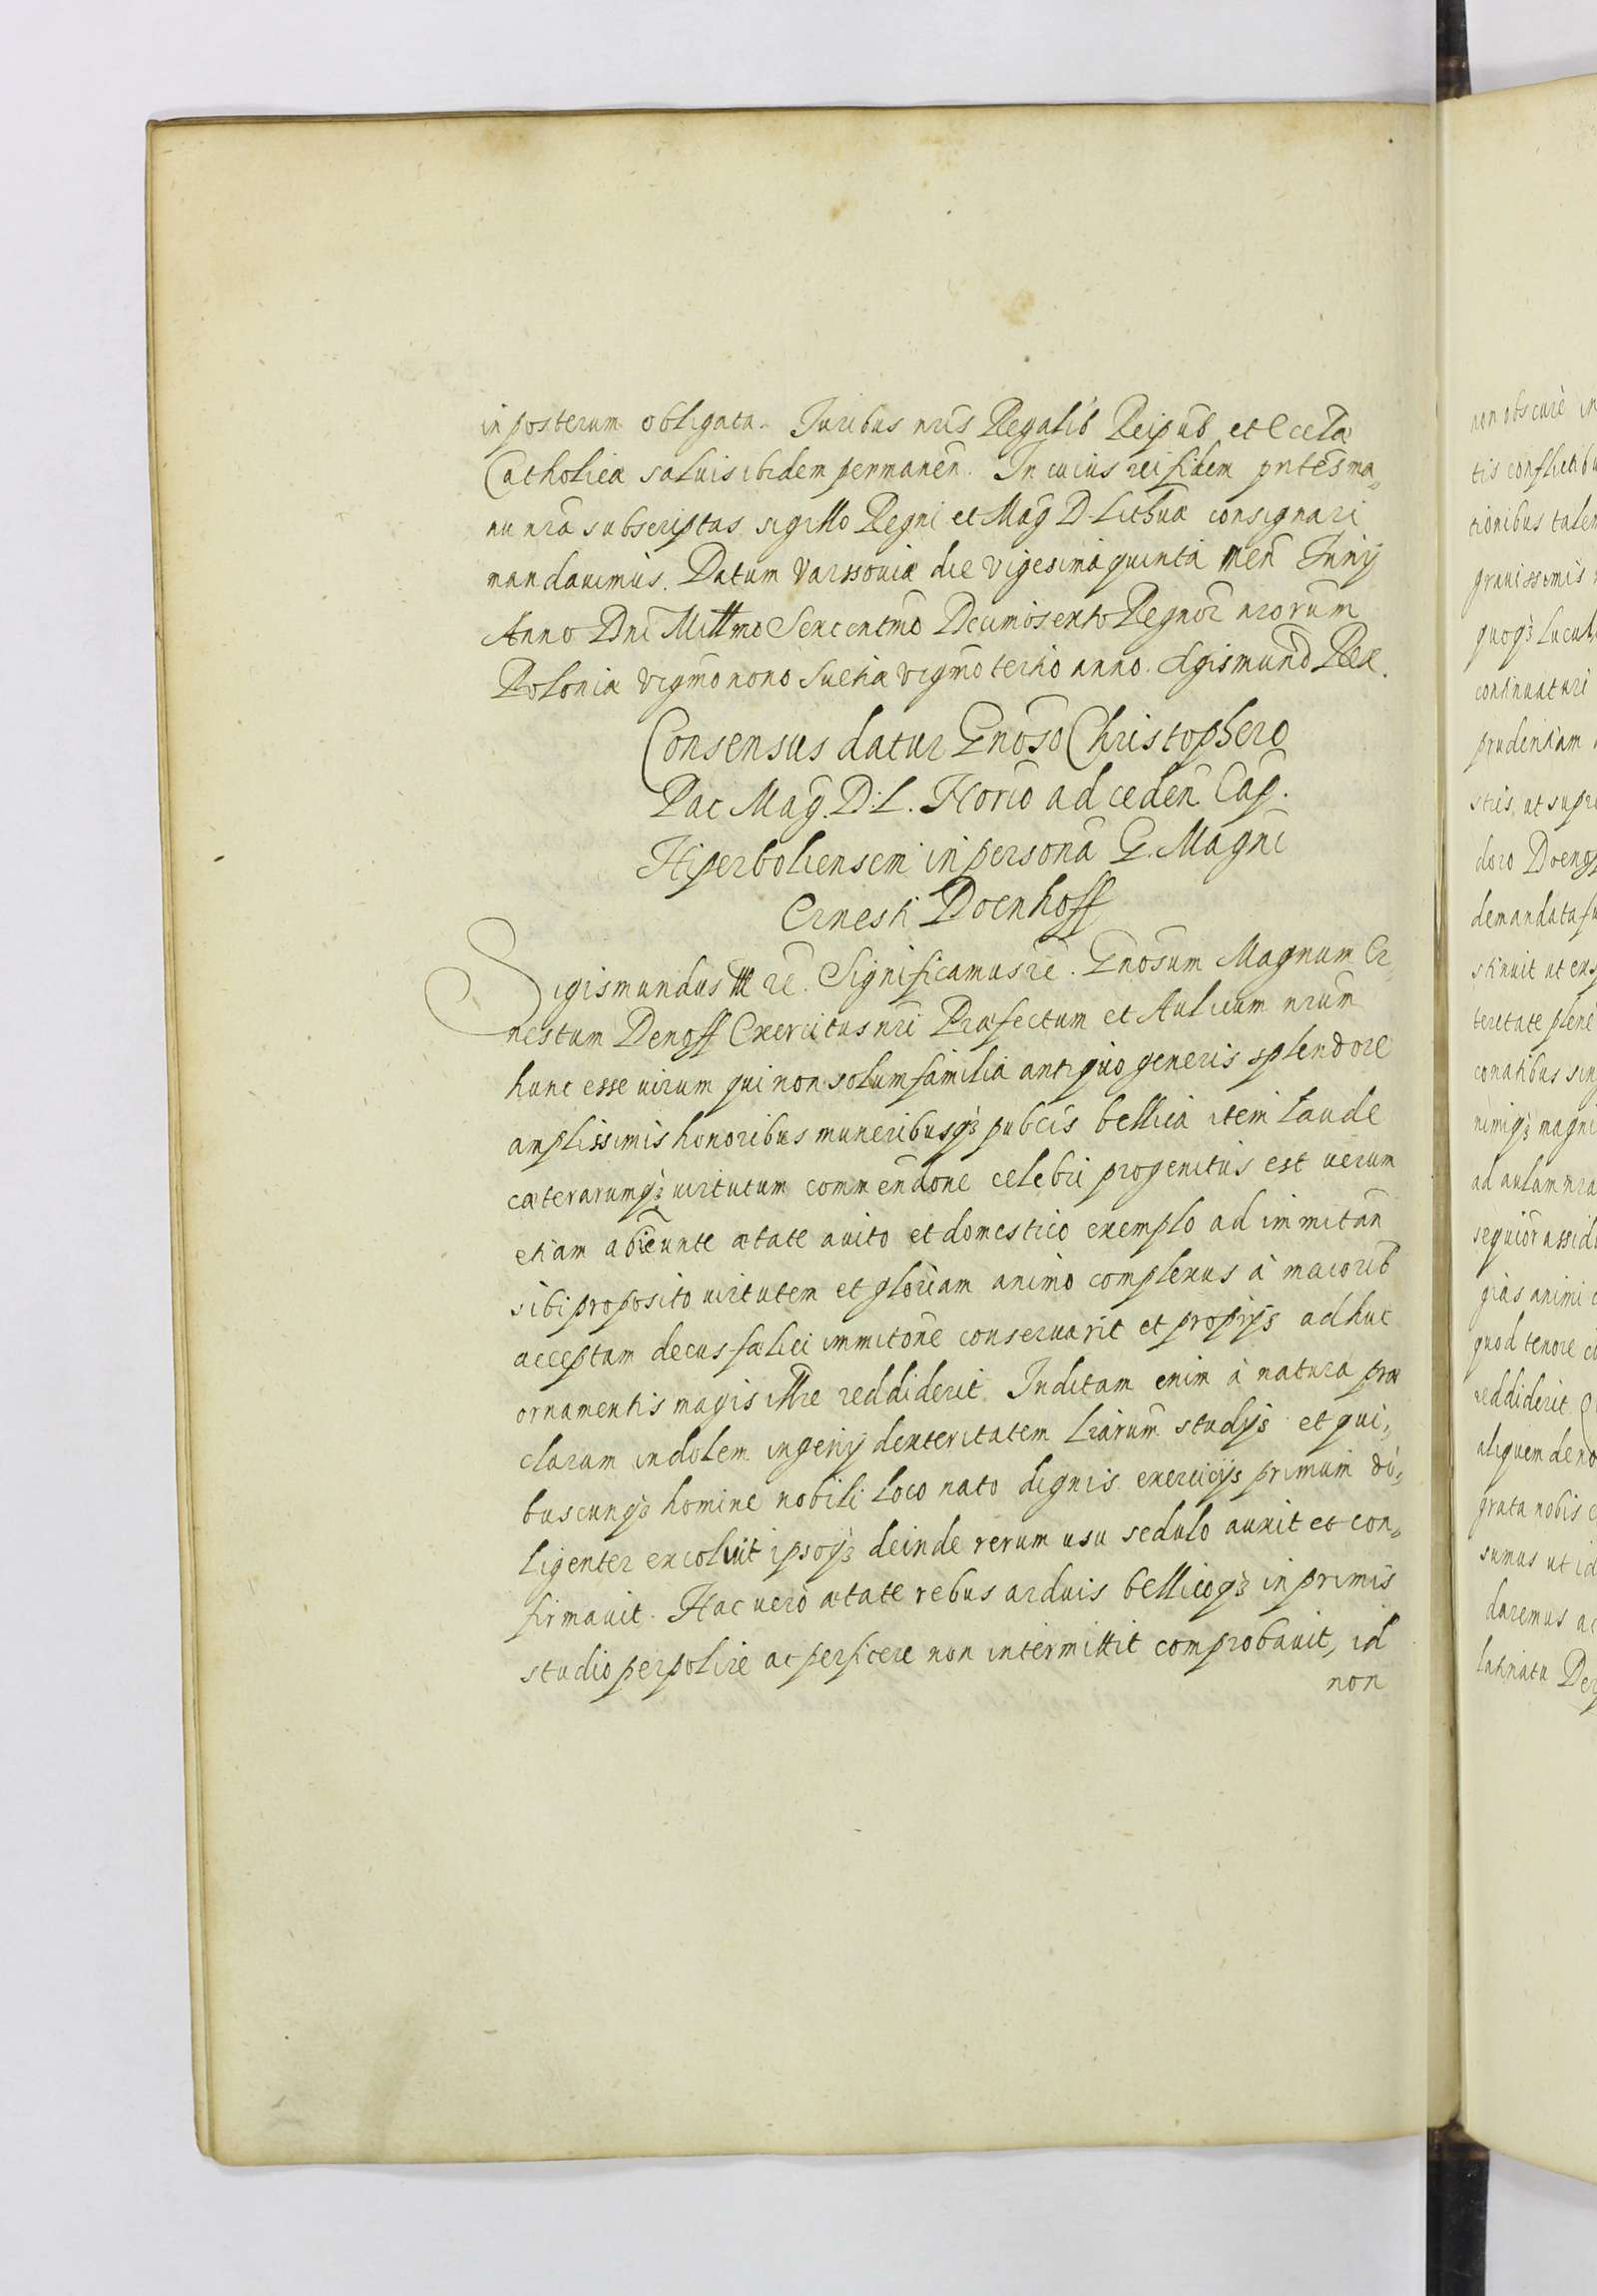 in posterum obligata. Iuribus nris Regalib Reipub et Eccliæ
Catholicæ saluis ibidem permanen. In cuius rei fidem pntes ma„
nu nra subscriptas sigillo Regni et Mag D. Lithuæ consignari
mandauimus. Datum Varssouiæ die vigesima quinta men Iunij
Anno Dni Millmo Sexcentmo Decimosexto Regnor nrorum
Poloniæ vigmo nono Sueciæ vigmo tertio anno. Sigismund Rex.
Consensus datur Gnoso Christophero
Pac Mag. D. L. Notrio ad ceden Cap.
Hiperboliensem in persona G. Magni
Ernesti Doenhoff
Sigismundus III rc. Significamus rc. Gnosum Magnum Er„
nestum Denoff Exercitus nri Præfectum et Aulicum nrum
hunc esse uirum qui non solum familia antiquo generis splendore
amplissimis honoribus muneribusq3 pubcis bellica item laude
cæterarumq3 uirtutum commendone celebri progenitus est uerum
etiam ab ieunte ætate auito et domestico exemplo ad immitan
sibi proposito uirtutem et gloriam animo complexus à maiorib
acceptam decus fælici immitone conseruarit et proprijs adhuc
ornamentis magis illre reddiderit. Inditam enim à natura præ
claram indolem ingenij dexteritatem lrarum studijs et qui„
buscunq3 homine nobili loco nato dignis exercicijs primum di„
ligenter excoluit ipsoq3 deinde rerum usu sedulo auxit et con„
firmauit. Hac uero ætate rebus arduis bellicoq3 in primis
studio perpolire ac perficere non intermittit comprobauit, id
non
non obscurè in
tis conflictibu
tionibus talem
grauissimis
quoq3 lucul
continuaturi
prudentiam
stris, ut supra
doro Doenoff
demandata fu
stinuit ut ex
teritate plene
conatibus sin
nimiq3 magni
ad aulam nra
sequior assid
gias animi
quod tenore
reddiderit
aliquem de no
grata nobis
sumus ut id
daremus ac
latinatu Der